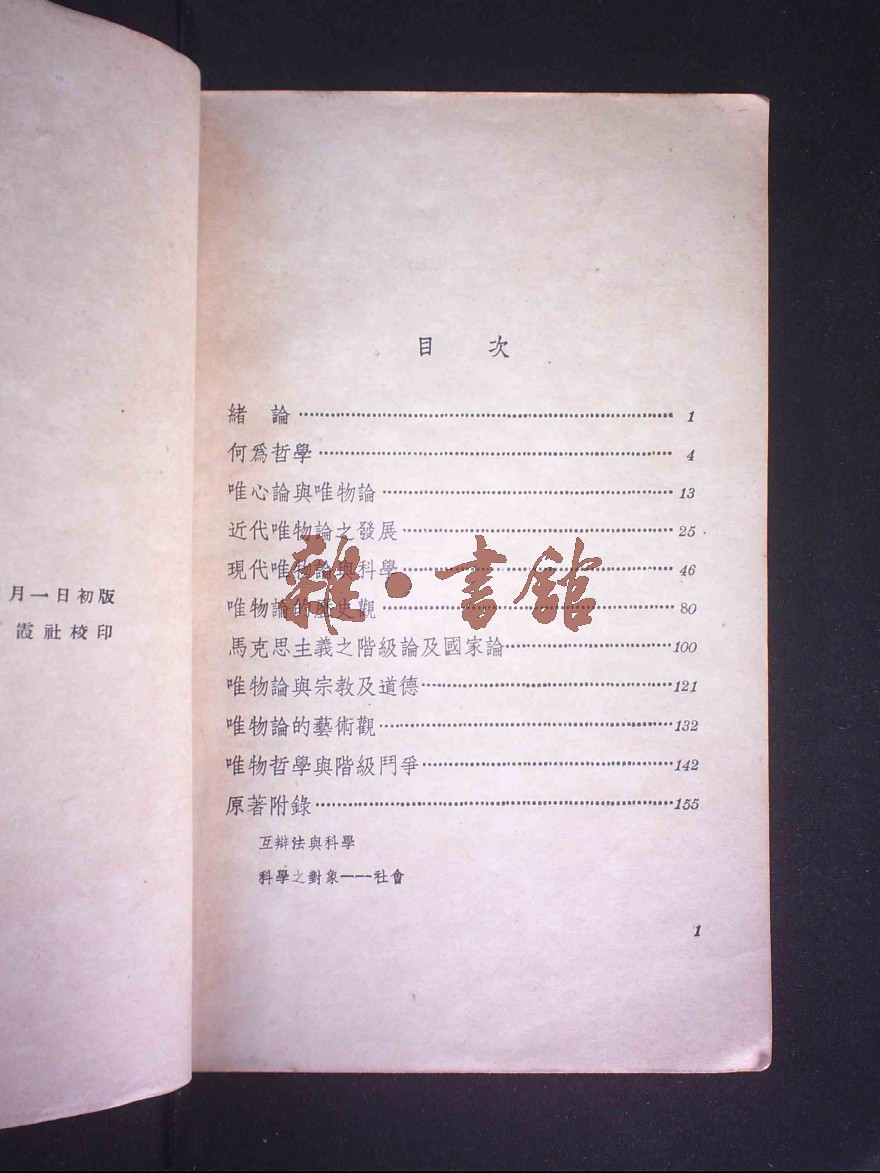 月一日初版
霞社校印
目 次
緒 論 1
何爲哲學 4
唯心論與唯物論 13
近代唯物論之發展 25
現代唯物論與科學 46
唯物論的歷史觀 80
馬克思主義之階級論及國家論 100
唯物論與宗教及道德 121
唯物論的藝術觀 132
唯物哲學與階級鬥爭 142
原著附錄 155
互辯法與科學
科學之對象———社會
1
雜·書館